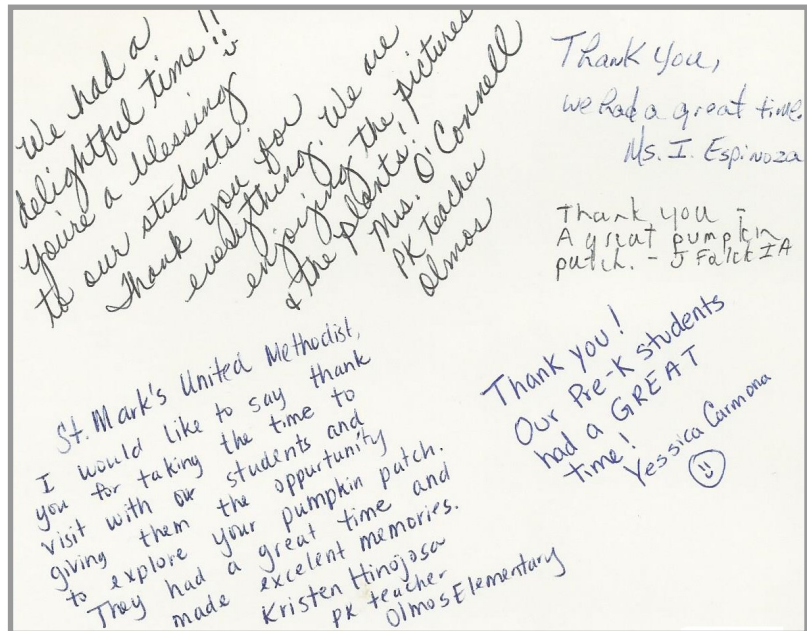 We had a
delightful time!!
You're a blessing
to our students!
Thank you for
everything. We are
enjoying the pictures
& the plants!
Mrs. O'Connell
PK teacher
Olmos
Thank you,
we had a great time.
Ms. I. Espinoza
Thank you -
A great pumpkin
patch. - J Falck IA
St. Mark's United Methodist,
I would like to say thank
you for taking the time to
visit with our students and
giving them the oppurtunity
to explore your pumpkin patch.
They had a great time and
made excelent memories.
Kristen Hinojosa
PK teacher
Olmos Elementary
Thank you!
Our Pre-K students
had a GREAT
time!
Yessica Carmona